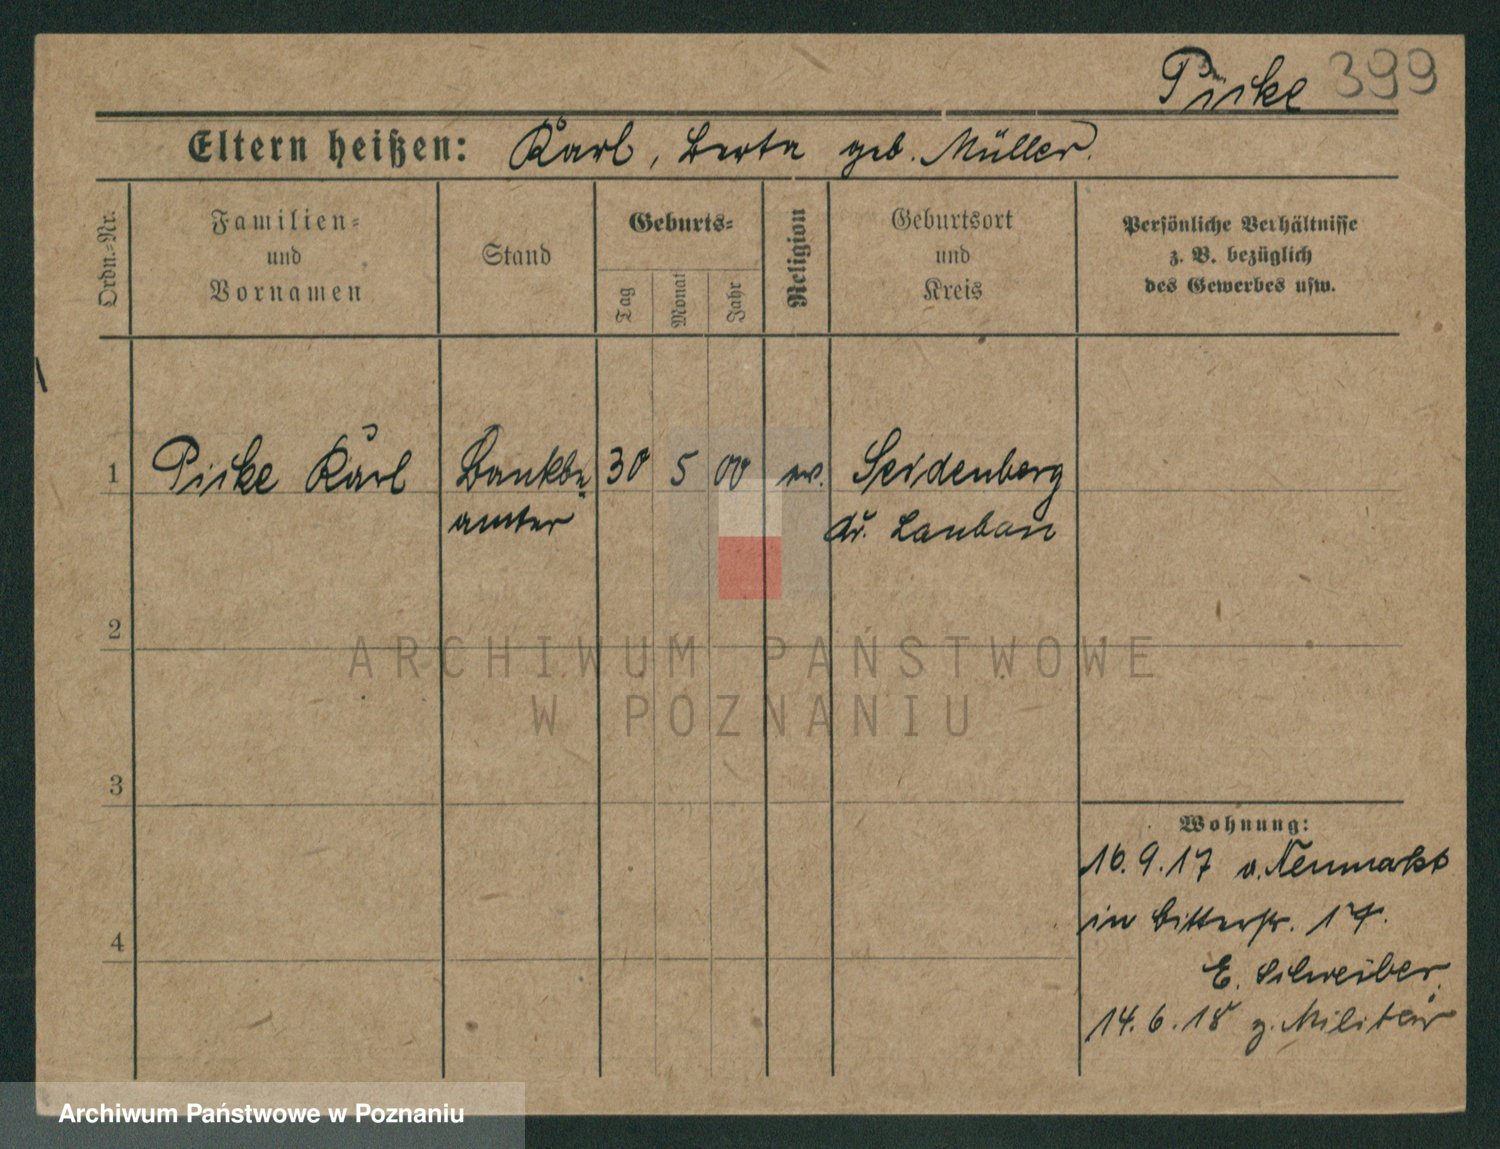 Picke 399
Eltern heißen: Karl, Berta geb. Müller.
Ordn.-Nr.
Familien-
und
Vornamen
Stand
Geburts-
Tag
Monat
Jahr
Religion
Geburtsort
und
Kreis
Persönliche Verhältnisse
z. B. bezüglich
des Gewerbes usw.
1 Picke Karl Bankbe- 30 5 00 ev. Seidenberg
amter Kr. Lauban
2
3
4
ARCHIWUM PAŃSTWOWE
W POZNANIU
Wohnung:
16.9.17 v. Neumarkt
in Ritterstr. 17.
E. Schreiber.
14.6.18 z. Militär
Archiwum Państwowe w Poznaniu